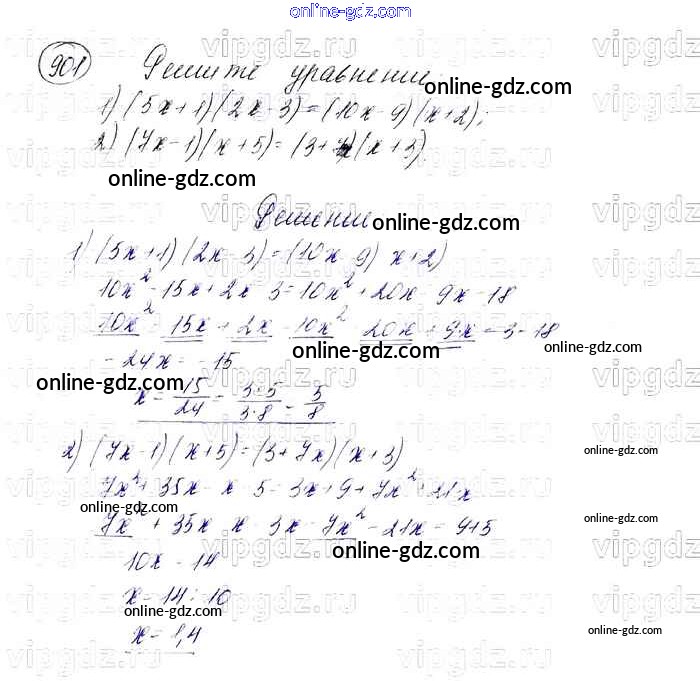 online-gdz.com
901 Решите уравнение
online-gdz.com
1) (5x+1)(2x-3)=(10x-9)(x+2);
2) (7x-1)(x+5)=(3+7x)(x+3)
online-gdz.com
Решение
online-gdz.com
1) (5x+1)(2x-3)=(10x-9) x+2)
10x² - 15x + 2x - 3 = 10x² + 20x - 9x - 18
10x² - 15x + 2x - 10x² - 20x + 9x = 3 - 18
online-gdz.com
online-gdz.com
- 24x = - 15
online-gdz.com
x = 15/24 = 3·5/3·8 = 5/8
online-gdz.com
2) (7x-1)(x+5)=(3+7x)(x+3)
online-gdz.com
7x² + 35x - x - 5 = 3x + 9 + 7x² + 21x
7x² + 35x - x - 3x - 7x² - 21x = 9+5
online-gdz.com
online-gdz.com
10x = 14
online-gdz.com
x = 14 : 10
online-gdz.com
x = 1,4
online-gdz.com